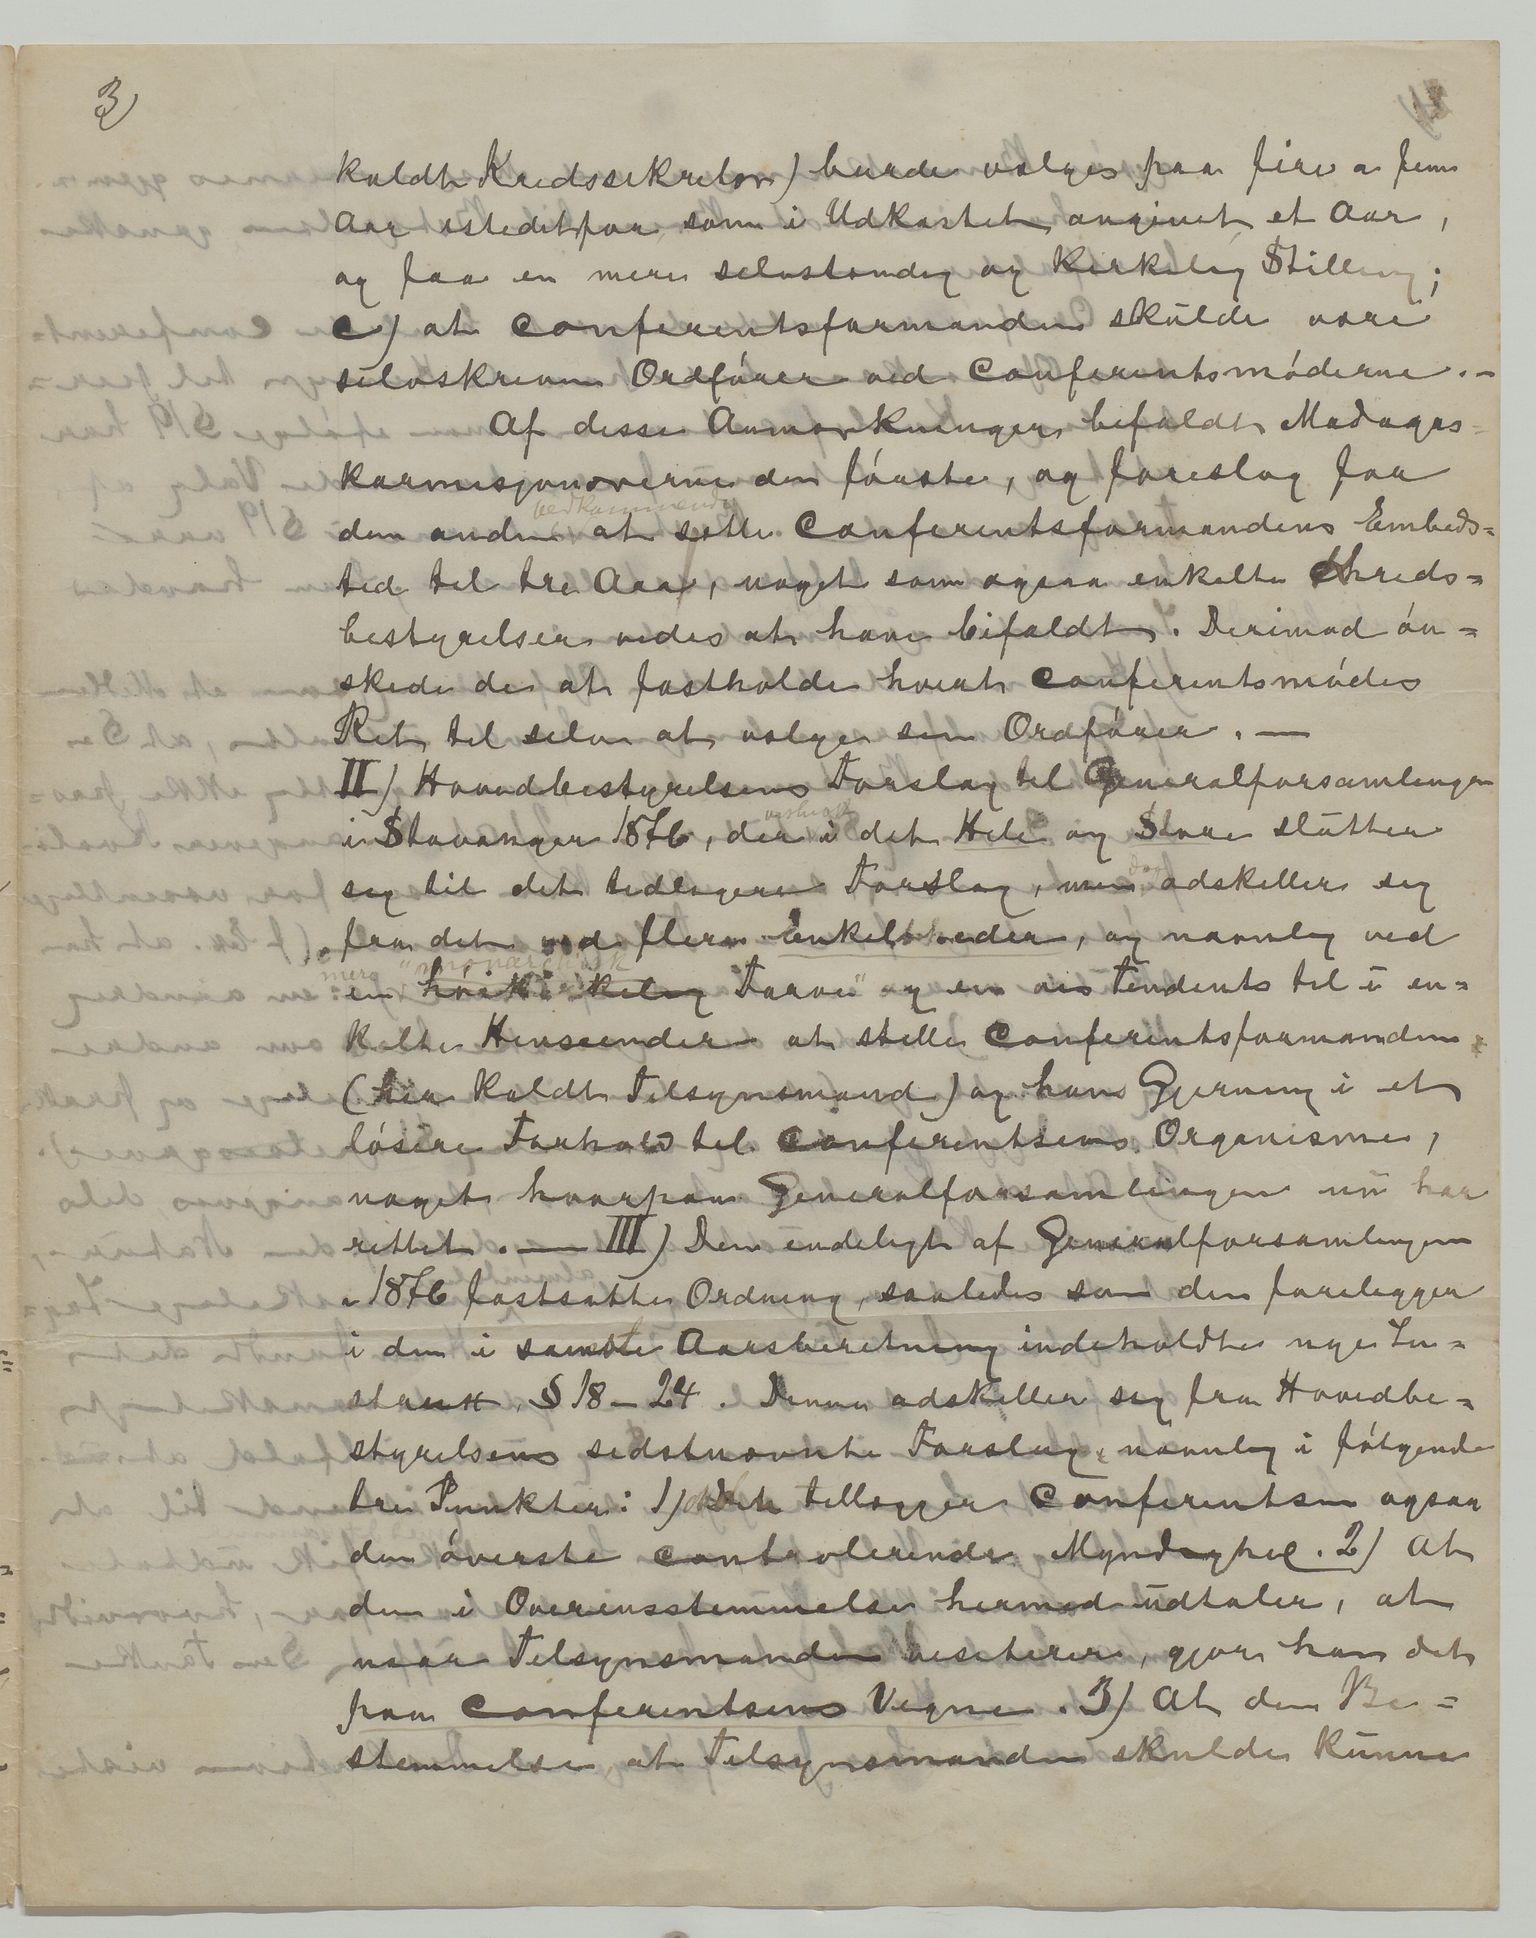 3)
kaldt Kredssekretær) burde vælges paa fire a fem
Aar istedetfor, som i Udkastet angivet et Aar,
og faa en mere selvstændig og kirkelig Stilling;
c) at Conferentsformanden skulde være
selvskreven Ordfører ved Conferentsmøderne. —
Af disse Anmærkninger bifaldt Madagas-
karmisjonærerne den første, og foreslog for
vedkommende
den anden at sætte Conferentsformandens Embeds-
tid til tre Aar, noget som ogsaa enkelte Kreds-
bestyrelser vides at have bifaldt. Derimod øn-
skede de at fastholde hvert Conferentsmødes
Ret til selv at vælge sin Ordfører. —
II) Hovedbestyrelsens Forslag til Generalforsamlingen
i Stavanger 1876, der i det Hele og Store slutter
sig til det tidligere Forslag, men adskiller sig
fra det ved flere Enkeltheder, og navnlig ved
mere "monarchisk
en kirkelig Farve" og en vis Tendents til i en-
kelte Henseender at stille Conferentsformanden
(her kaldt Tilsynsmand) og hans Gjerning i et
løsere Forhold til Conferentsens Organisme,
noget hvorpaa Generalforsamlingen nu har
rettet. — III) Den endeligt af Generalforsamlingen
i 1876 fastsatte Ordning, saaledes som den foreligger
i den i samme Aarsberetning indeholdte nye In-
strux § 18 – 24. Denne adskiller sig fra Hovedbe-
styrelsens sidstnævnte Forslag navnlig i følgende
tre Punkter: 1) at den tillægger Conferentsen ogsaa
den øverste controlerende Myndighed. 2) At
den i Overensstemmelse hermed udtaler, at
naar Tilsynsmanden visiterer, gjør han det
paa Conferentsens Vegne. 3) At den Be-
stemmelse, at Tilsynsmanden skulde kunne